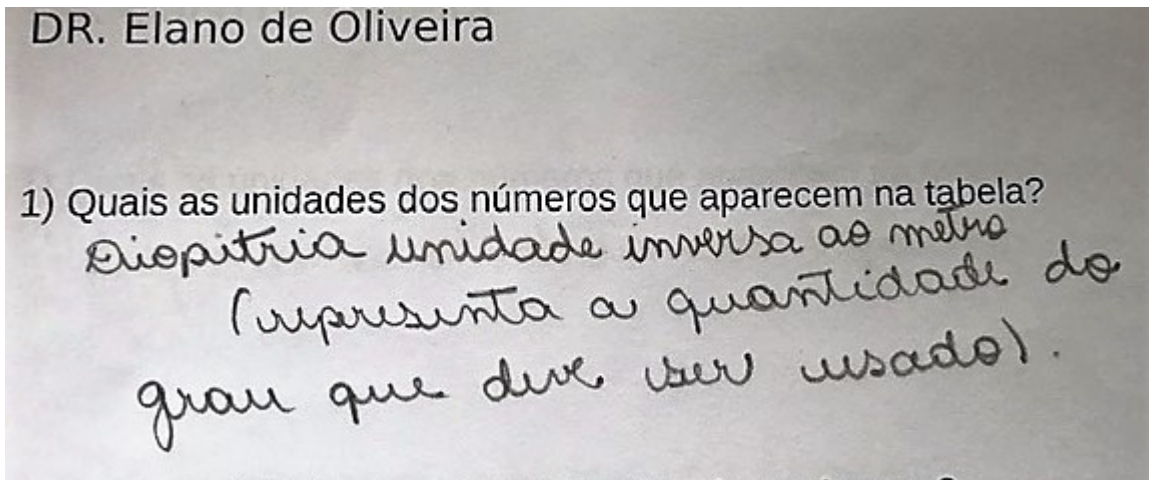 DR. Elano de Oliveira
1) Quais as unidades dos números que aparecem na tabela?
Diopitria unidade inversa ao metro
(representa a quantidade do
grau que deve ser usado).